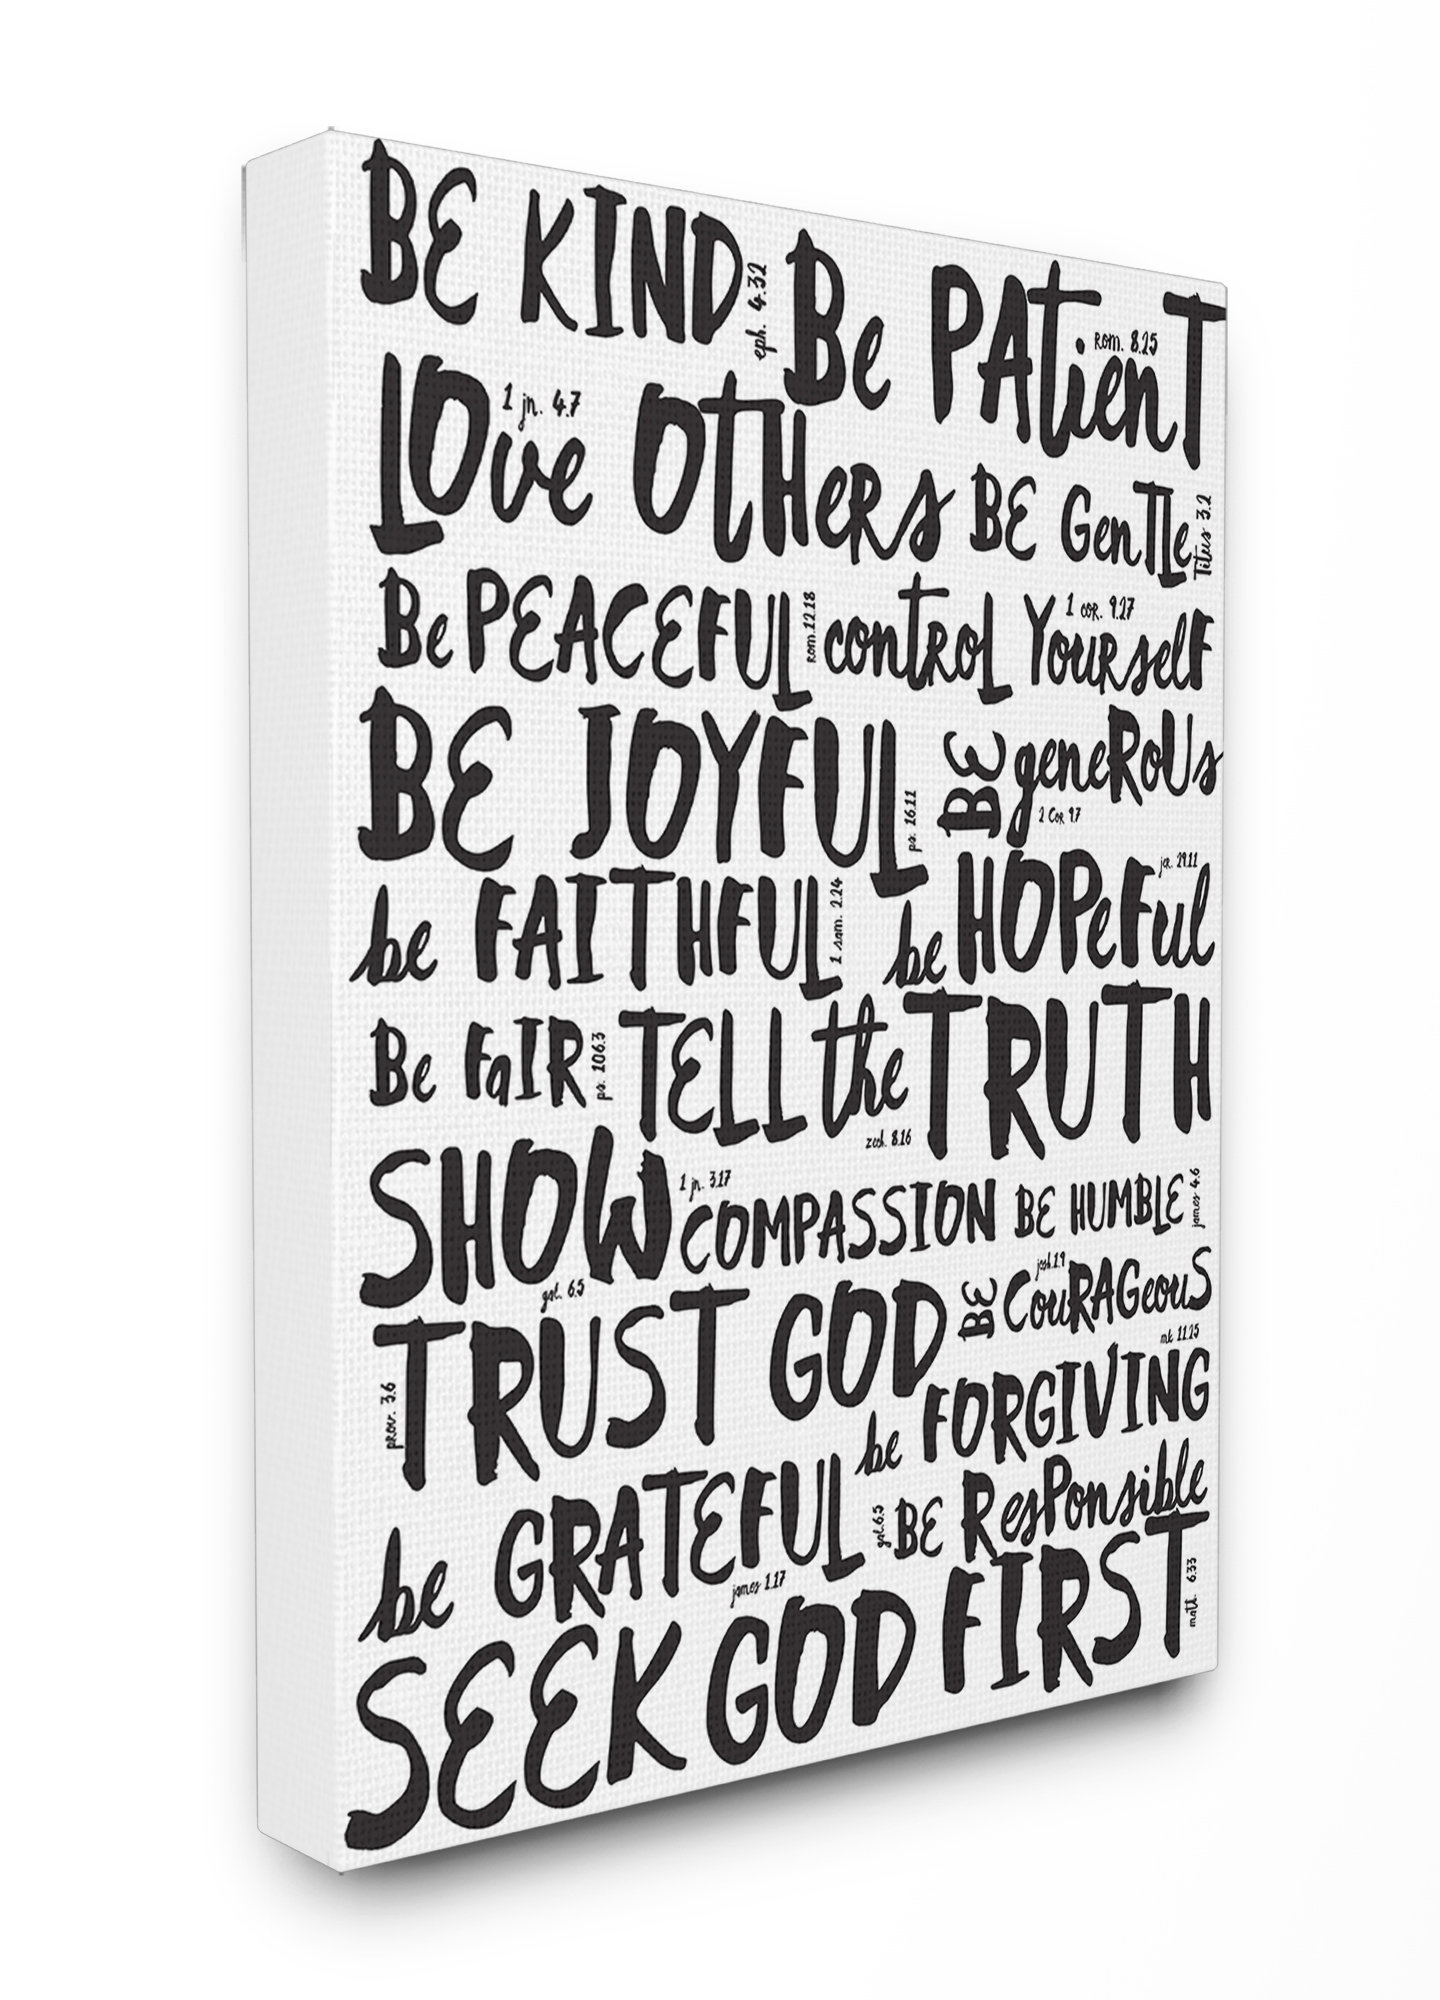 BE KIND eph. 4.32 Be PATIENT rom. 8.25
LOVE OTHERS 1 jn. 4.7 BE GENTLE Titus 3.2
Be PEACEFUL rom. 12.18 CONTROL YOURSELF 1 COR. 9.27
BE JOYFUL ps. 16.11 BE geneROUS 2 COR 9.7
be FAITHFUL 1 sam. 2.24 be HOPeFul jer. 29.11
Be FaIR ps. 106.3 TELL the TRUTH zech. 8.16
SHOW COMPASSION 1 jn. 3.17 BE HUMBLE james 4.6
TRUST GOD prov. 3.6 BE CouRAGeouS josh. 1.9
gal. 6.5
be FORGIVING mk 11.25
be GRATEFUL james 1.17 BE ResPonsible gal. 6.5
SEEK GOD FIRST matt. 6.33